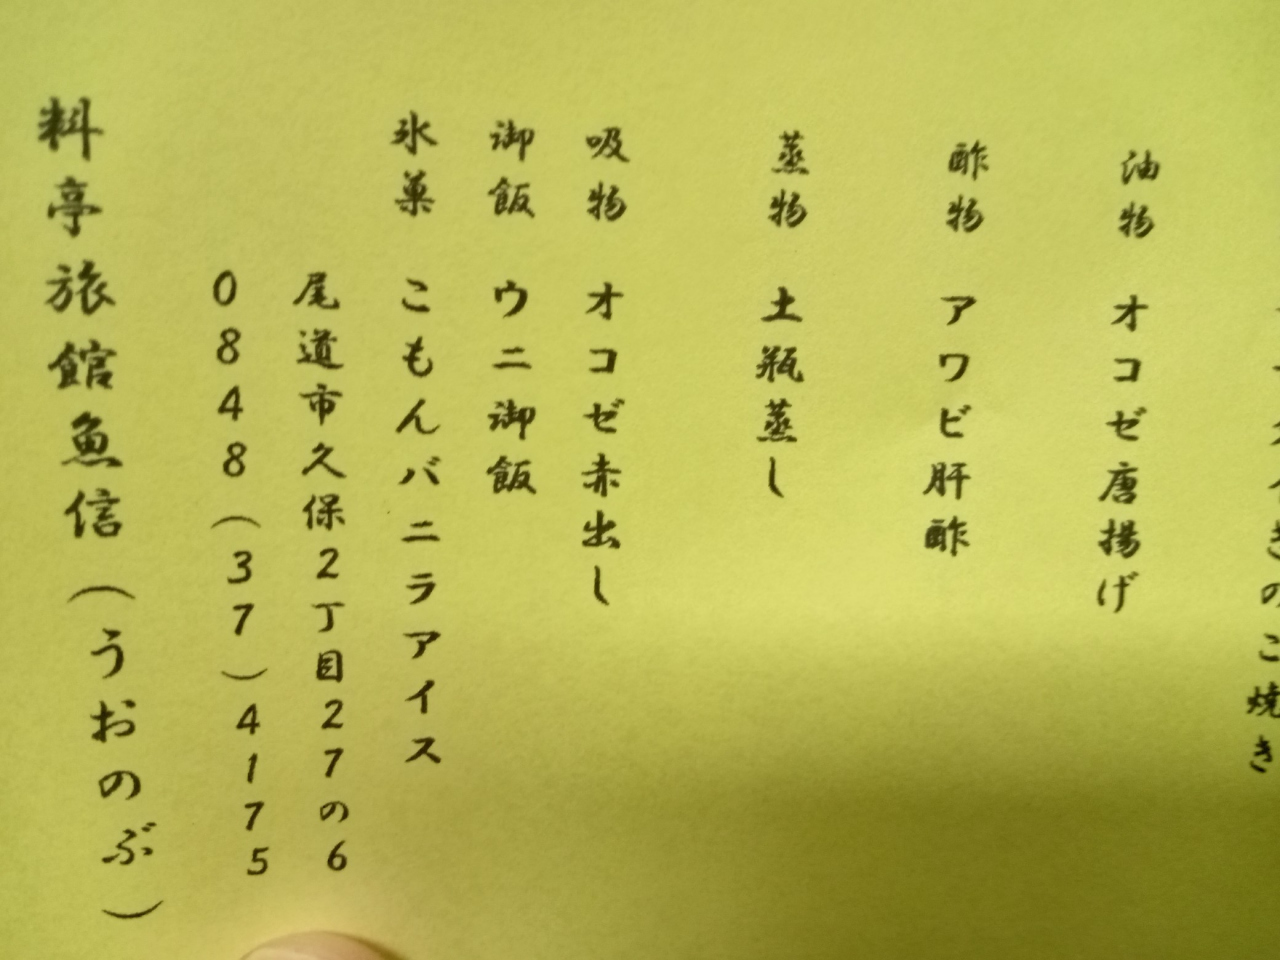 のこ焼き
油物 オコゼ唐揚げ
酢物 アワビ肝酢
蒸物 土瓶蒸し
吸物 オコゼ赤出し
御飯 ウニ御飯
氷菓 こもんバニラアイス
尾道市久保2丁目27の6
0848(37)4175
料亭旅館魚信(うおのぶ)